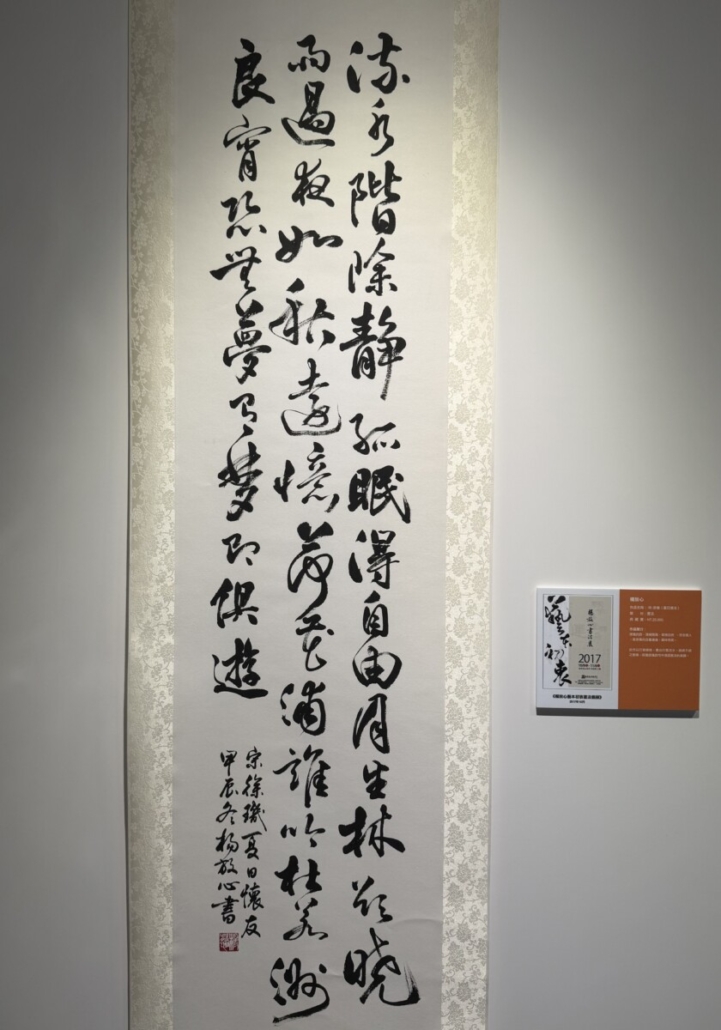 流水階除靜孤眠得自由月生林欲晓
雨過夜如秋遠憶荷花浦誰吟杜若洲
良宵恐無夢有梦即俱遊
宋徐璣夏日懷友
甲辰冬楊放心書
楊放心書法展
2017
楊放心